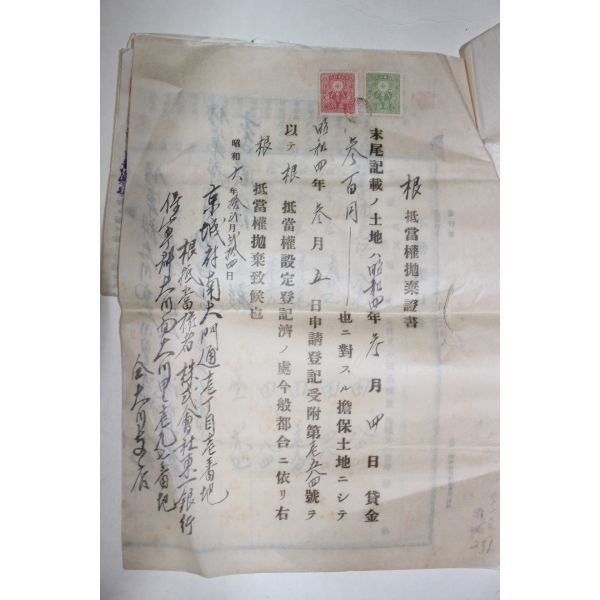 根 抵當權抛棄證書
末尾記載ノ土地ハ昭和四年 参 月 四 日貸金
参百円也ニ對スル擔保土地ニシテ
昭和四年 参 月 五 日申請登記受附第 号ヲ
以テ 根 抵當權設定登記濟ノ處今般都合ニ依リ右
根 抵當權抛棄致候也
昭和 六 年 拾弐月 拾四日
京城府南大門通壱丁目壱番地
根抵當権者 株式會社東一銀行
郡大川面大川里 番地
仝大川支店